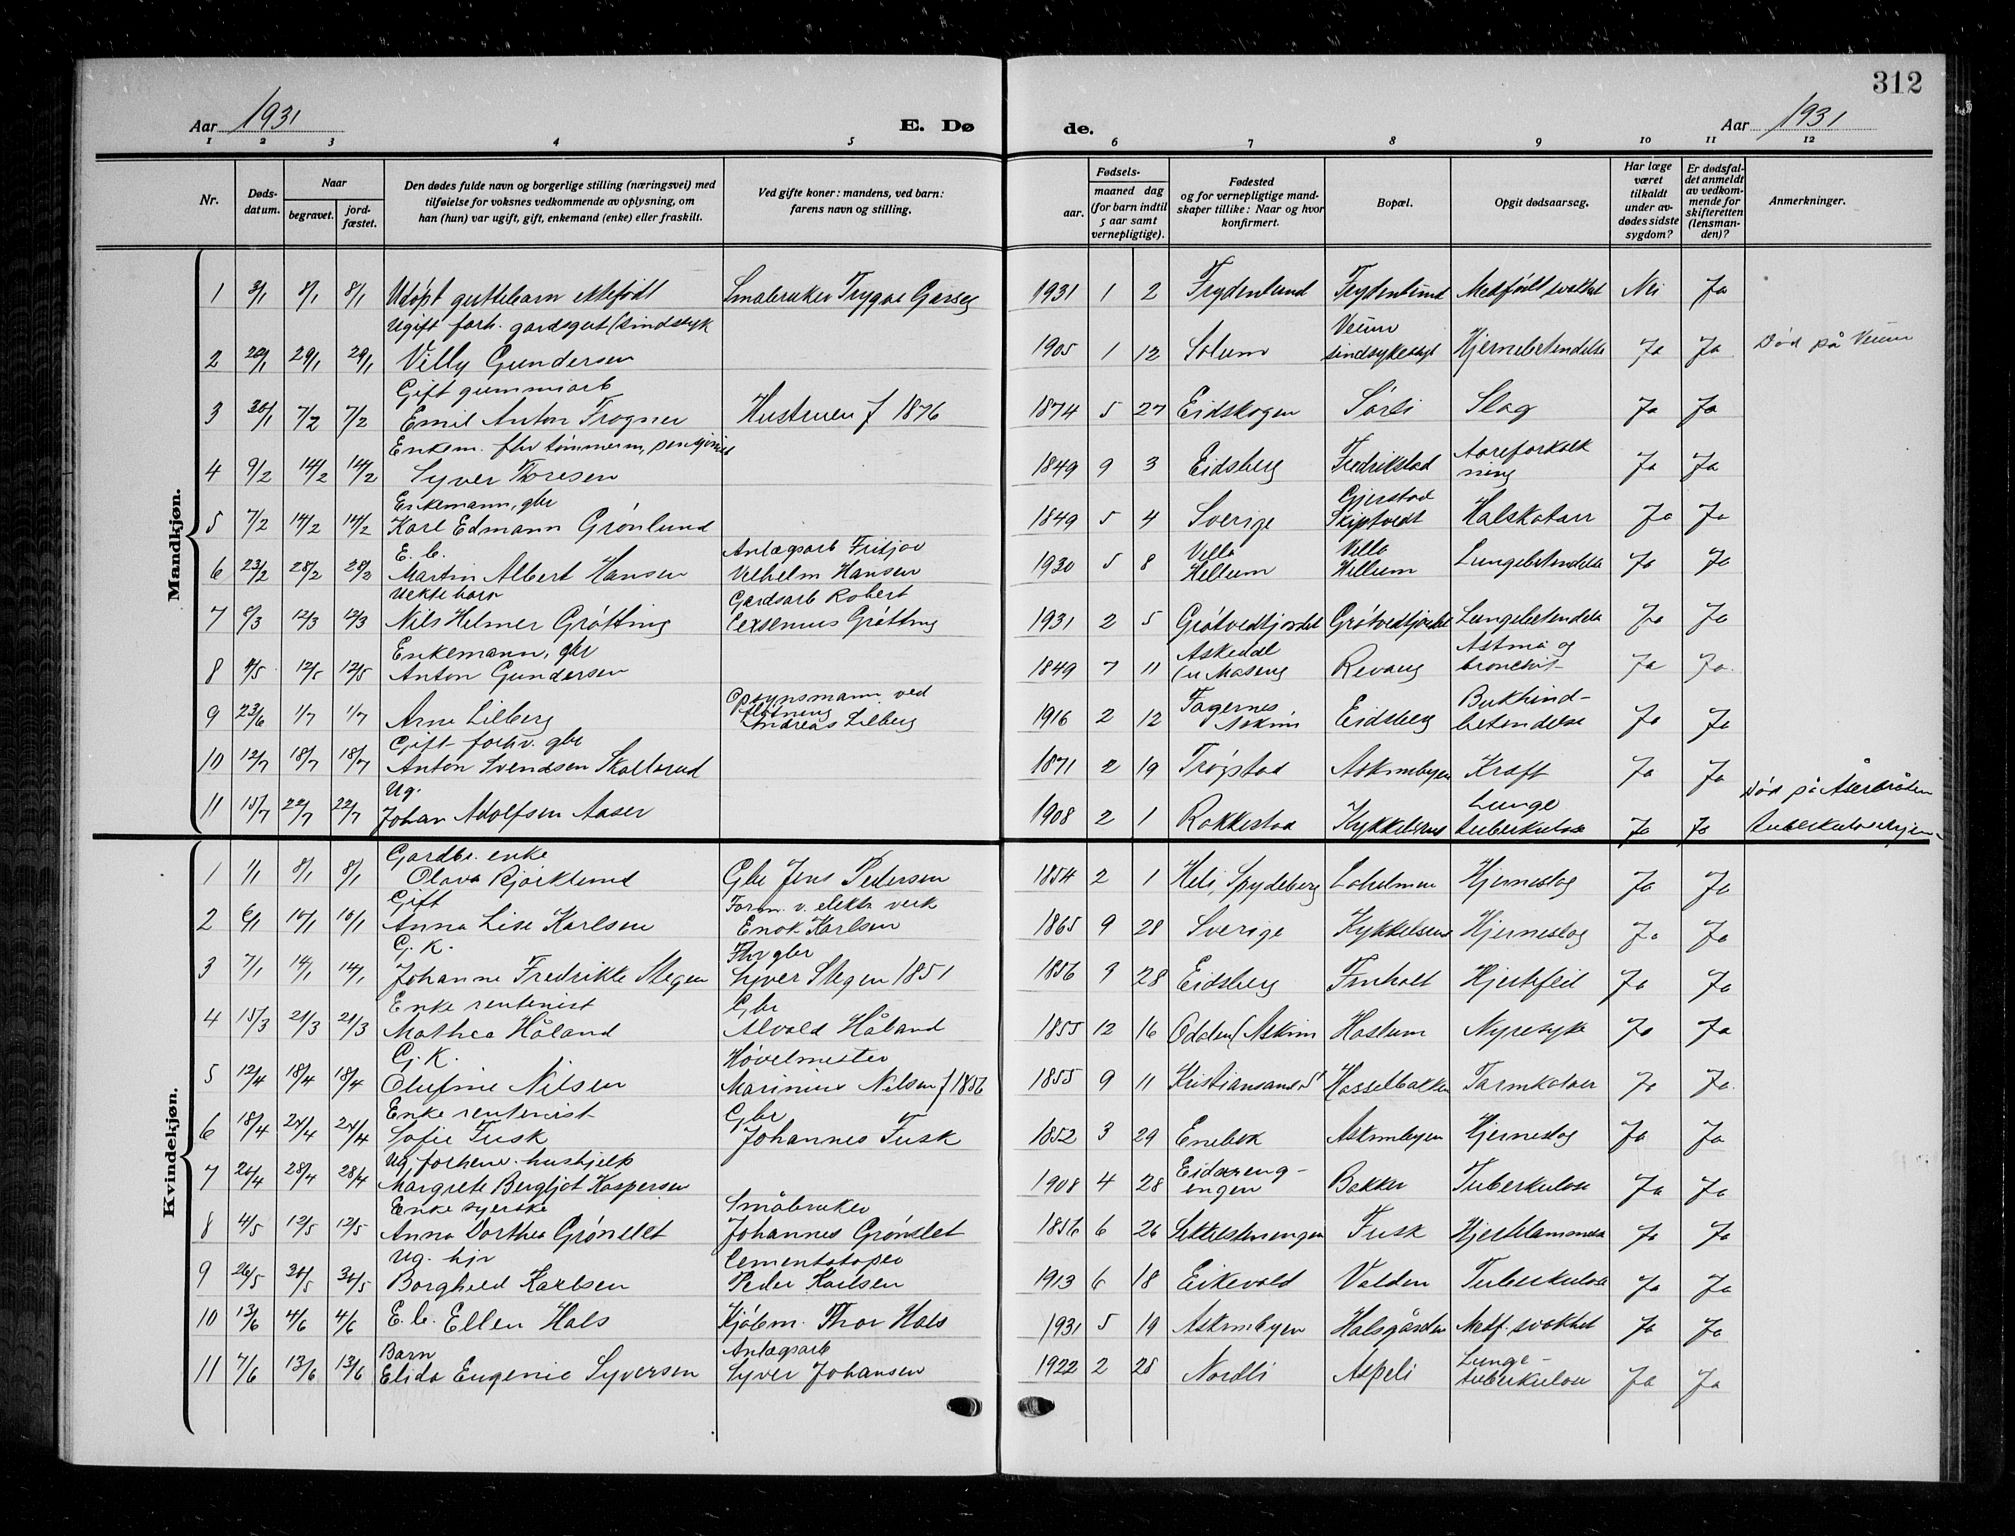 312
Aar 1931 E. Dø de. Aar 1931
1 2 3 4 5 6 7 8 9 10 11 12
Nr. Døds-datum. Naar begravet. jord-fæstet. Den dødes fulde navn og borgerlige stilling (næringsvei) med tilføielse for voksnes vedkommende av oplysning, om han (hun) var ugift, gift, enkemand (enke) eller fraskilt. Ved gifte koner: mandens, ved barn: farens navn og stilling. Fødsels- aar. maaned dag (for barn indtil 5 aar samt vernepligtige). Fødested og for vernepligtige mand-skaper tillike: Naar og hvor konfirmert. Bopæl. Opgit dødsaarsag. Har læge været tilkaldt under av-dødes sidste sygdom? Er dødsfal-det anmeldt av vedkom-mende for skifteretten (lensman-den)? Anmerkninger.
Mandkjøn.
1 3/1 8/1 8/1 Udøpt guttebarn ektefødt Småbruker Trygve 1931 1 2 Frydenlund Frydenlund Medfødt svakhet Nei Ja
Ugift forh. gardsgut (sindssyk Veum
2 29/1 29/1 Villy Gundersen 1905 1 12 Solum sindsykeasyl Hjernebetendelse Ja Ja Død på Veum
Gift gummiarb
3 30/1 7/2 7/2 Emil Anton Trogner Hustruen f 1876 1874 5 27 Eidskogen Sørli Slag Ja Ja
Enkem. fhv tømmerm, pensjonist Aareforkalk
4 9/2 14/2 14/2 Syver Thoresen 1849 9 3 Eidsberg Fredrikstad ning Ja Ja
Enkemann, gbr Gjerstad
5 7/2 14/2 14/2 Karl Edmann Grønlund 1849 5 4 Sverige Skiptvedt Halskatarr Ja Ja
E. b. Anlægsarb Fritjov Villa Villa
6 23/2 28/2 28/2 Martin Albert Hansen Vilhelm Hansen 1930 5 8 Hellum Hellum Lungebetendelse Ja Ja
Uekte barn Gardsarb Robert
7 8/3 12/3 12/3 Nils Helmer Grøtting Grøtting 1931 2 5 Grøtvedtjordet Grøtvedtjordet Lungebetendelse Ja Ja
Enkemann, gbr Askedal Astma og
8 12/5 12/5 Anton Gundersen 1849 7 11 Revaug bronchit Ja Ja.
Opsynsmann ved Fagernes Bukhind-
9 23/6 1/7 1/7 Arne Lilberg fløtning Andreas Lilberg 1916 2 12 Askim Eidsberg betendelse Ja Ja
Gift forhv. gbr
10 12/7 18/7 18/7 Anton Svendsen Skallerud 1871 2 19 Trøgstad Askimbyen Kræft Ja Ja
Ug. Lunge Død på
11 15/7 22/7 22/7 Johan Adolfsen Aaser 1908 2 1 Rakkestad Kykkelsrud tuberkulose Ja Ja
Kvindekjøn.
Gardbr. enke
1 1/1 8/1 8/1 Olava Bjørklund Gbr Jens Pedersen 1854 2 1 Heli, Spydeberg Loholmen Hjerneslag Ja Ja
Gift Form. v. elektr verk
2 6/1 10/1 10/1 Anna Lise Karlsen Enok Karlsen 1865 9 28 Sverige Kykkelsrud Hjerneslag Ja Ja
G. K. Fhv gbr
3 7/1 14/1 14/1 Johanne Fredrikke Stegen Syver Stegen 1851 1856 9 28 Eidsberg Finholt Hjertefeil Ja Ja
Enke rentenist Gbr
4 15/3 21/3 21/3 Mathea Håland Alvald Håland 1855 12 16 Odden (Askim Haslum Nyresyke Ja Ja
G. K. Høvelmester
5 12/4 18/4 18/4 Olufine Nilsen Marinius Nilsen f 1856 1855 9 11 Kristiansand S Hasselbakken Tarmkatarr Ja Ja.
Enke rentenist Gbr
6 18/4 24/4 24/4 Sofie Fusk Johannes Fusk 1852 3 29 Enebak Askimbyen Hjerneslag Ja Ja
Ug forhenv. hushjelp
7 20/4 28/4 28/4 Margrete Bergljot Kaspersen 1908 4 28 engen Bakker Tuberkulose Ja Ja
Enke syerske Småbruker
8 4/5 12/5 12/5 Anna Dorthea Grønslet Johannes Grønslet 1856 6 26 Fusk Hjertelammelse Ja Ja
Ug. hjv Cementstøper
9 26/5 30/5 30/5 Borghild Karlsen Peder Karlsen 1913 6 18 Eikevold Valden Tuberkulose Ja Ja
10 4/6 4/6 E. b. Ellen Hals Kjøbm. Thor Hals 1931 5 19 Askimbyen Halsgården Medf. svakhet Ja Ja
Barn Anlægsarb Lunge-
11 7/6 13/6 13/6 Elida Eugenie Syversen Syver Johansen 1922 2 28 Nordli Aspeli tuberkulose Ja Ja